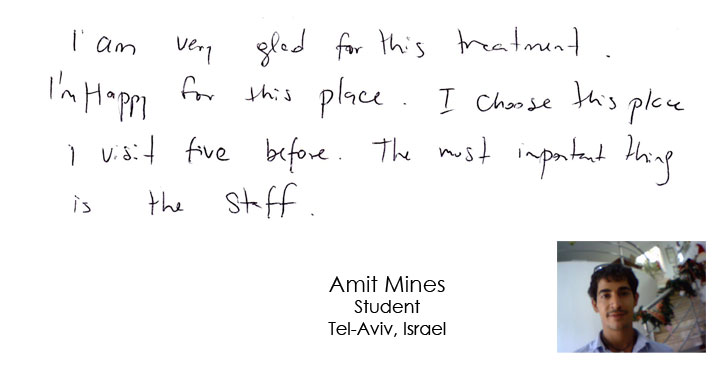 I am very glad for this treatment.
I'm Happy for this place. I choose this place
I visit five before. The most inportant thing
is the Staff.
Amit Mines
Student
Tel-Aviv, Israel